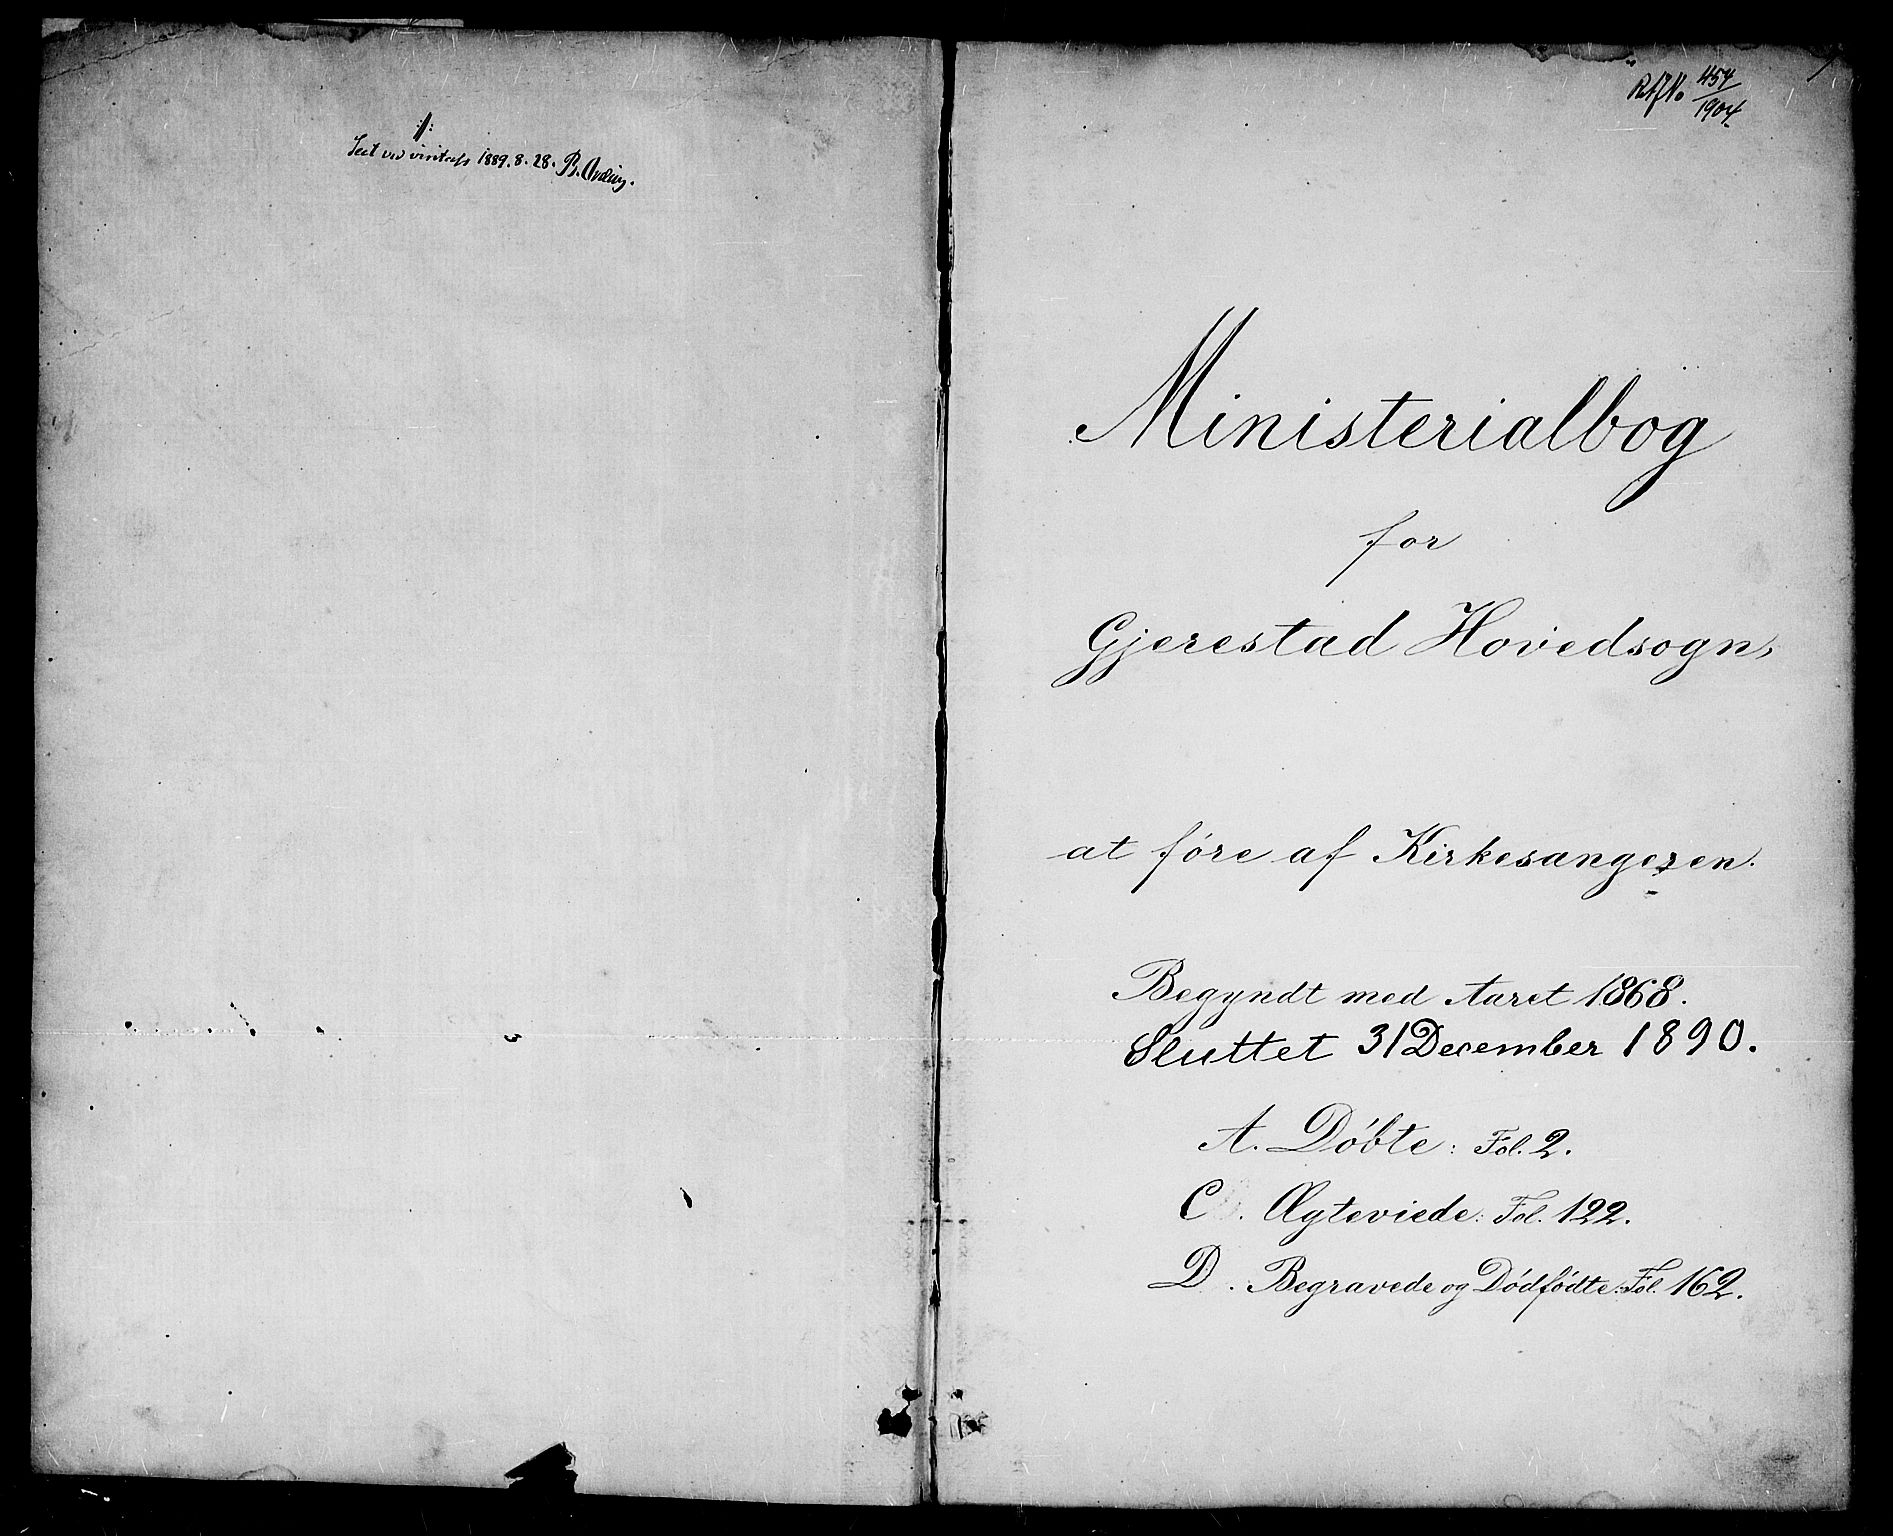 Seet ved visitats 1889. 8. 28. B.
454
1904
Ministerialbog
for
Gjerestad Hovedsogn,
at føre af Kirkesangeren.
Begyndt med Aaret 1868.
Sluttet 31 December 1890.
A. Døbte: Fol. 2.
C. Ægteviede: Fol. 122.
D. Begravede og Dødfødte: Fol. 162.